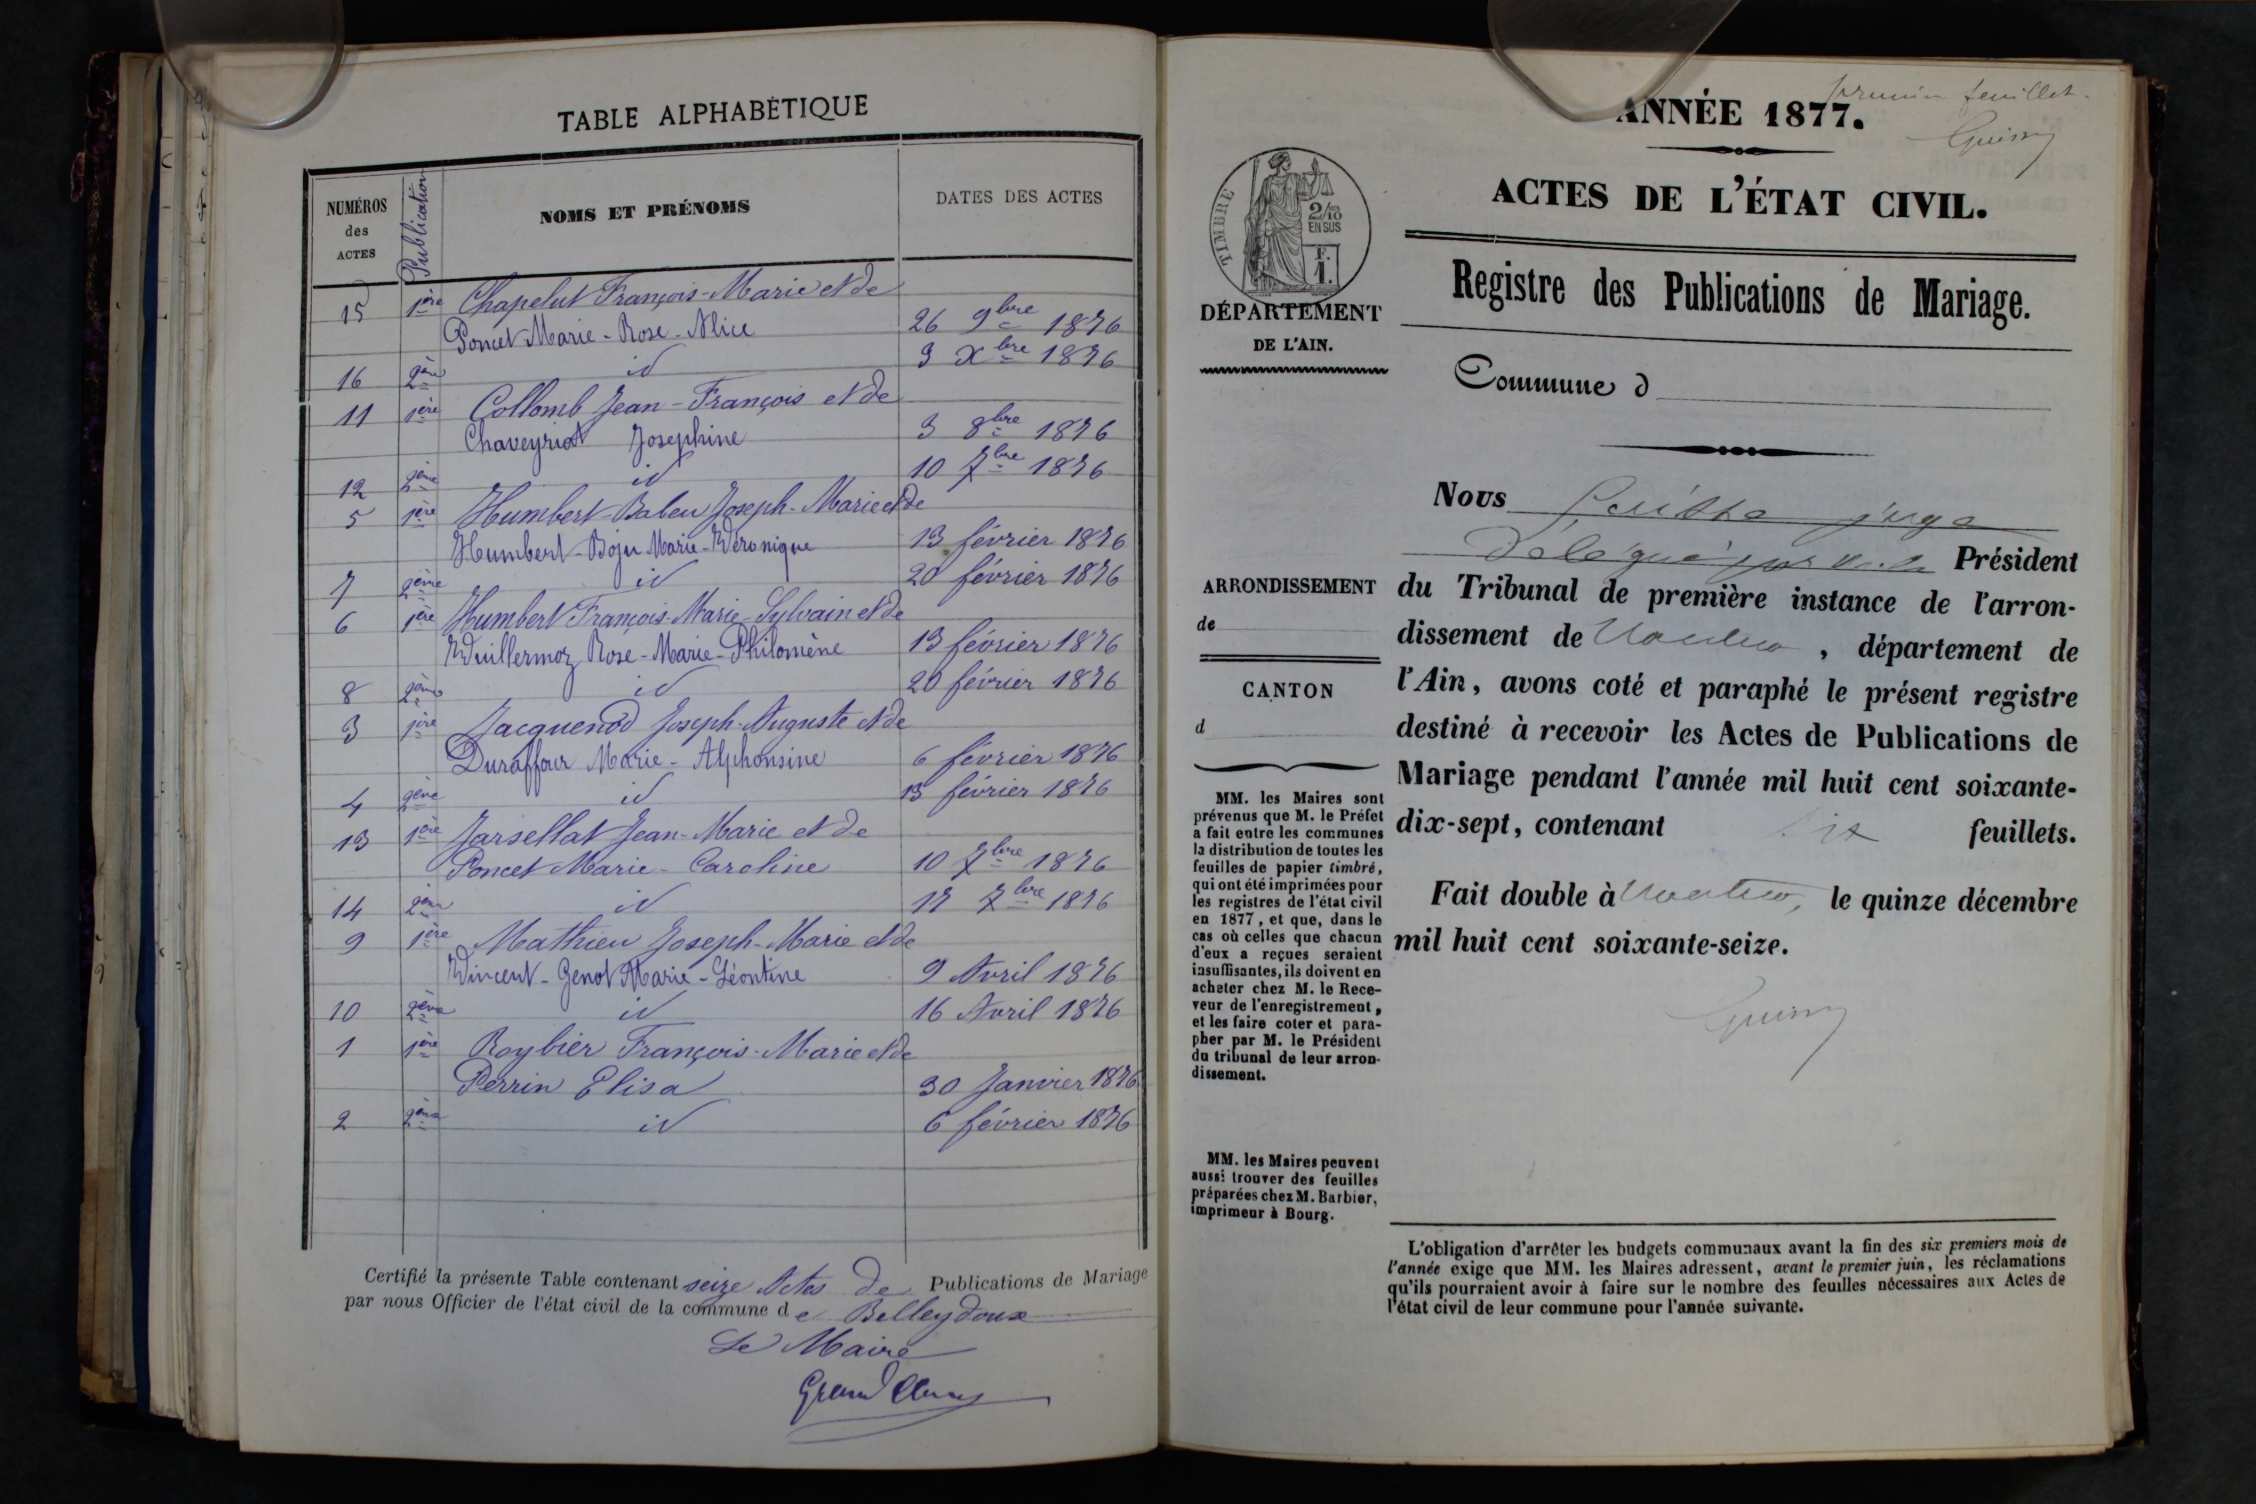 TABLE ALPHABÉTIQUE
NUMÉROS des ACTES
Publication
NOMS ET PRÉNOMS
DATES DES ACTES
15 1ère Chapelut François-Marie et de
Poncet Marie-Rose-Alice 26 9bre 1876
16 2ème id 3 Xbre 1876
11 1ère Collomb Jean-François et de
Chaveyriat Josephine 3 8bre 1876
12 2ème id 10 7bre 1876
5 1ère Humbert-Baleu Joseph-Marie et de
Humbert-Boju Marie-Véronique 13 février 1876
7 2ème id 20 février 1876
6 1ère Humbert François-Marie-Sylvain et de
Vuillermoz Rose-Marie-Philomène 13 février 1876
8 2ème id 20 février 1876
3 1ère Jacquenod Joseph-Auguste et de
Duraffour Marie-Alphonsine 6 février 1876
4 2ème id 13 février 1876
13 1ère Jarsellat Jean-Marie et de
Poncet Marie-Caroline 10 7bre 1876
14 2ème id 17 7bre 1876
9 1ère Mathieu Joseph-Marie et de
Vincent-Genot Marie-Léontine 9 Avril 1876
10 2ème id 16 Avril 1876
1 1ère Roybier François-Marie et de
Perrin Elisa 30 Janvier 1876
2 2ème id 6 février 1876
Certifié la présente Table contenant seize Actes de Publications de Mariage
par nous Officier de l'état civil de la commune de Belleydoux
Le Maire
premier feuillet.
ANNÉE 1877.
ACTES DE L'ÉTAT CIVIL.
Registre des Publications de Mariage.
Commune d
TIMBRE
2/10 EN SUS
F. 1.
DÉPARTEMENT
DE L'AIN.
ARRONDISSEMENT
de
CANTON
d
MM. les Maires sont
prévenus que M. le Préfet
a fait entre les communes
la distribution de toutes les
feuilles de papier timbré,
qui ont été imprimées pour
les registres de l'état civil
en 1877, et que, dans le
cas où celles que chacun
d'eux a reçues seraient
insuffisantes, ils doivent en
acheter chez M. le Rece-
veur de l'enregistrement,
et les faire coter et para-
pher par M. le Président
du tribunal de leur arron-
dissement.
MM. les Maires peuvent
aussi trouver des feuilles
préparées chez M. Barbier,
imprimeur à Bourg.
Nous juge
Délégué par Président
du Tribunal de première instance de l'arron-
dissement de Nantua, département de
l'Ain, avons coté et paraphé le présent registre
destiné à recevoir les Actes de Publications de
Mariage pendant l'année mil huit cent soixante-
dix-sept, contenant six feuillets.
Fait double à Nantua, le quinze décembre
mil huit cent soixante-seize.
L'obligation d'arrêter les budgets communaux avant la fin des six premiers mois de
l'année exige que MM. les Maires adressent, avant le premier juin, les réclamations
qu'ils pourraient avoir à faire sur le nombre des feuilles nécessaires aux Actes de
l'état civil de leur commune pour l'année suivante.